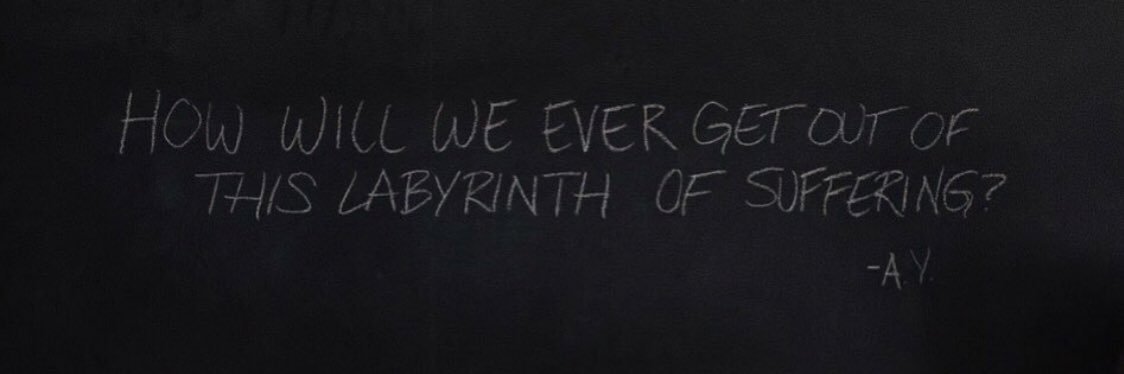 HOW WILL WE EVER GET OUT OF
THIS LABYRINTH OF SUFFERING?
-A.Y.